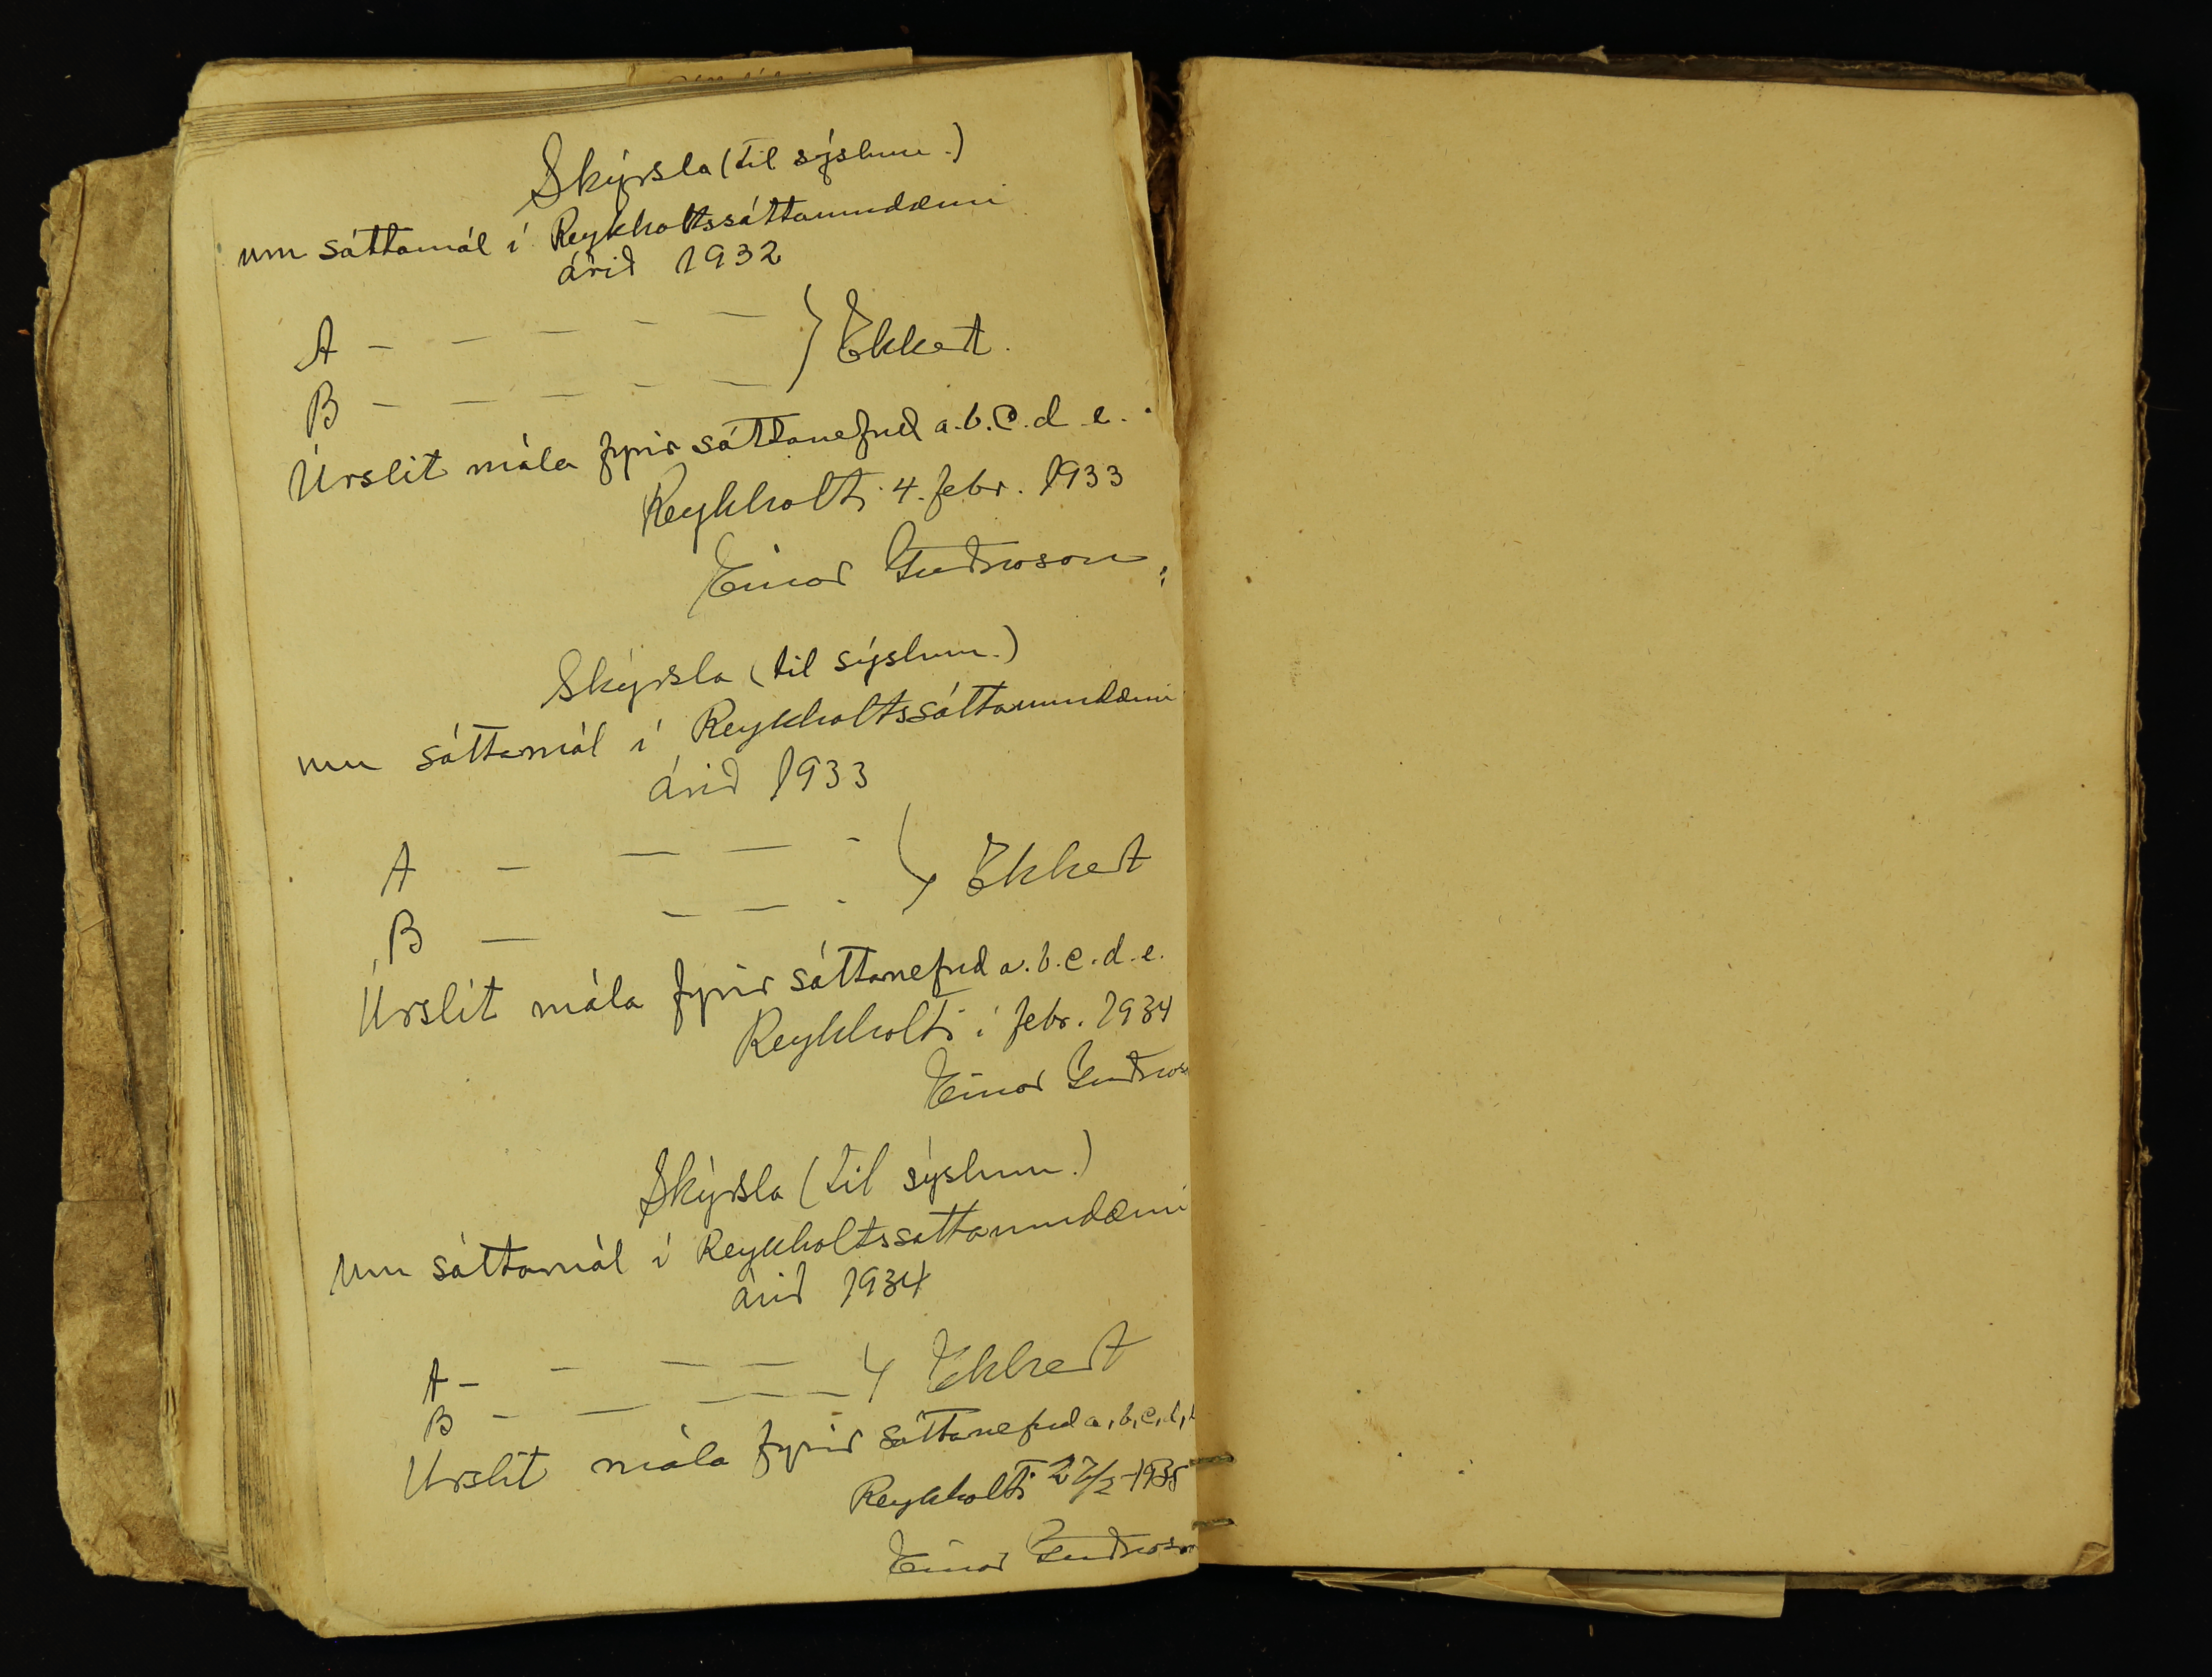 Skýrsla (til sýslum.)
um sáttamál í Reykholtssáttaumdæmi
árið 1932
A — — — — — } Ekkert.
B — — — — —
Úrslit mála fyrir sáttanefnd a. b. c. d. e.
Reykholti 4. febr. 1933
Einar Guðnason
Skýrsla (til sýslum.)
um sáttamál í Reykholtssáttaumdæmi
árið 1933
A — — — - } Ekkert
B — — — -
Úrslit mála fyrir sáttanefnd a. b. c. d. e.
Reykholti í febr. 1934
Einar Guðnason
Skýrsla (til sýslum.)
um sáttamál í Reykholtssáttaumdæmi
árið 1934
A — — — — } Ekkert
B — — — — —
Úrslit mála fyrir sáttanefnd a, b, c, d,
Reykholti 27/2 - 1935
Einar Guðnason